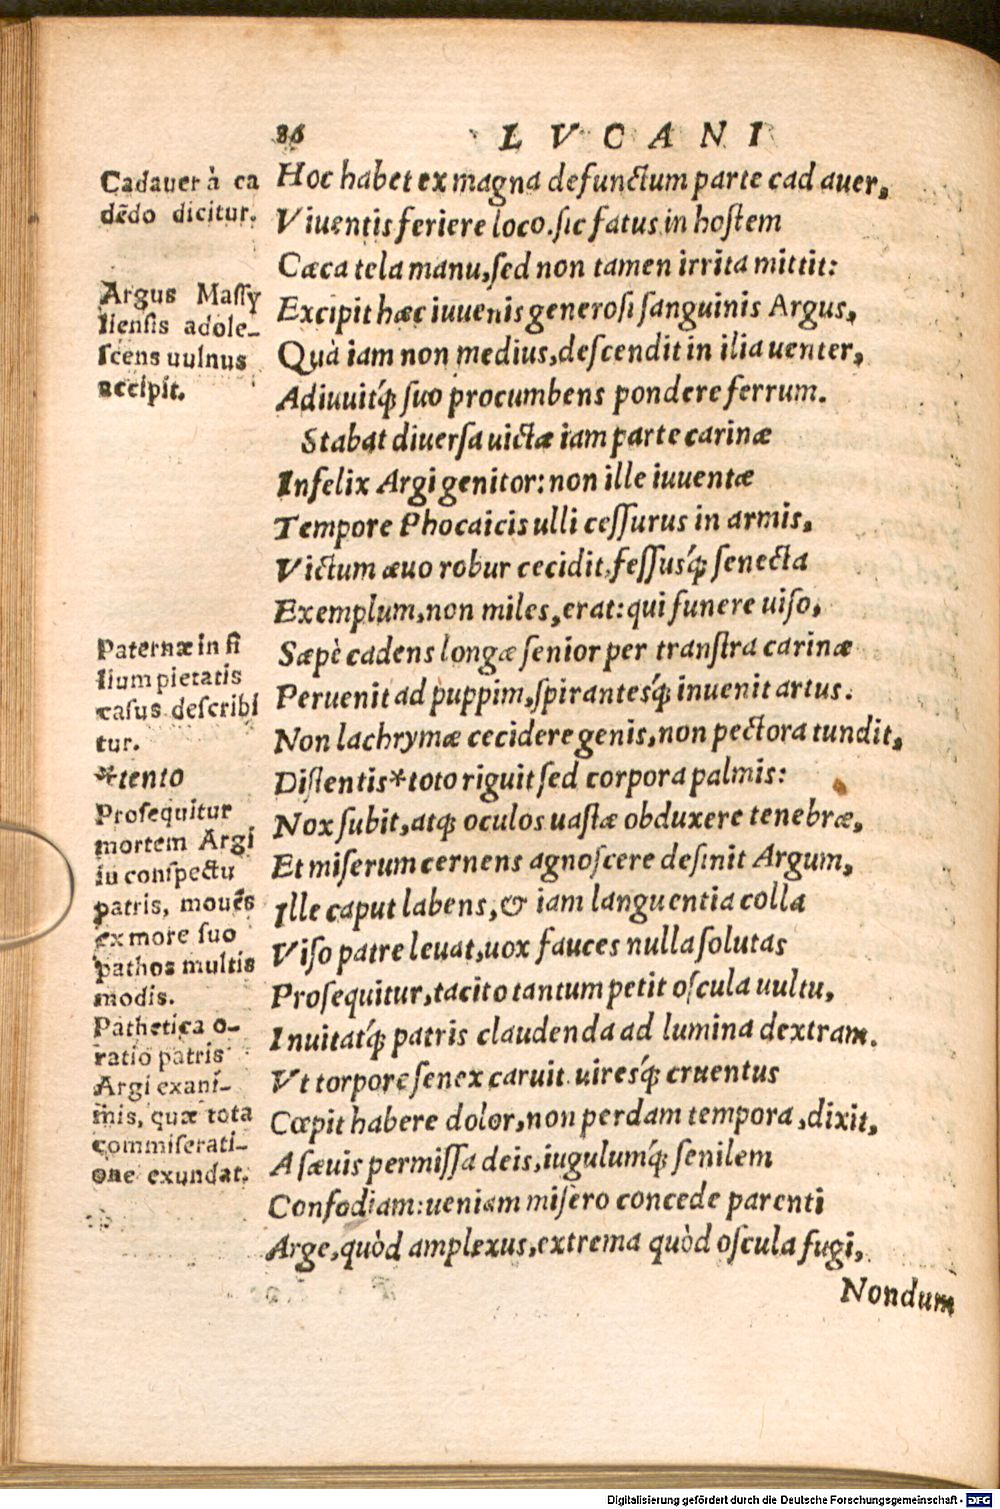 86
L V C A N I
Cadauer à ca
dẽdo dicitur.
Argus Massy
liensis adole-
scens uulnus
accipit.
Paternæ in fi
lium pietatis
casus describi
tur.
*tento
Prosequitur
mortem Argi
in conspectu
patris, mouẽs
ex more suo
pathos multis
modis.
Pathetica o-
ratio patris
Argi exani-
mis, quæ tota
commiserati-
one exundat.
Hoc habet ex magna defunctum parte cadauer,
Viuentis feriere loco. sic fatus in hostem
Cæca tela manu, sed non tamen irrita mittit:
Excipit hæc iuuenis generosi sanguinis Argus,
Quà iam non medius, descendit in ilia uenter,
Adiuuitq́; suo procumbens pondere ferrum.
Stabat diuersa uictæ iam parte carinæ
Infelix Argi genitor: non ille iuuentæ
Tempore Phocaicis ulli cessurus in armis,
Victum æuo robur cecidit, fessusq́; senecta
Exemplum, non miles, erat: qui funere uiso,
Sæpè cadens longæ senior per transtra carinæ
Peruenit ad puppim, spirantesq́; inuenit artus.
Non lachrymæ cecidere genis, non pectora tundit,
Distentis*toto riguit sed corpora palmis:
Nox subit, atq; oculos uastæ obduxere tenebræ,
Et miserum cernens agnoscere desinit Argum,
Ille caput labens, & iam languentia colla
Viso patre leuat, uox fauces nulla solutas
Prosequitur, tacito tantum petit oscula uultu,
Inuitatq́; patris claudenda ad lumina dextram.
Vt torpore senex caruit uiresq́; cruentus
Cœpit habere dolor, non perdam tempora, dixit,
A sæuis permissa deis, iugulumq́; senilem
Confodiam: ueniam misero concede parenti
Arge, quòd amplexus, extrema quòd oscula fugi,
Nondum
Digitalisierung gefördert durch die Deutsche Forschungsgemeinschaft - DFG